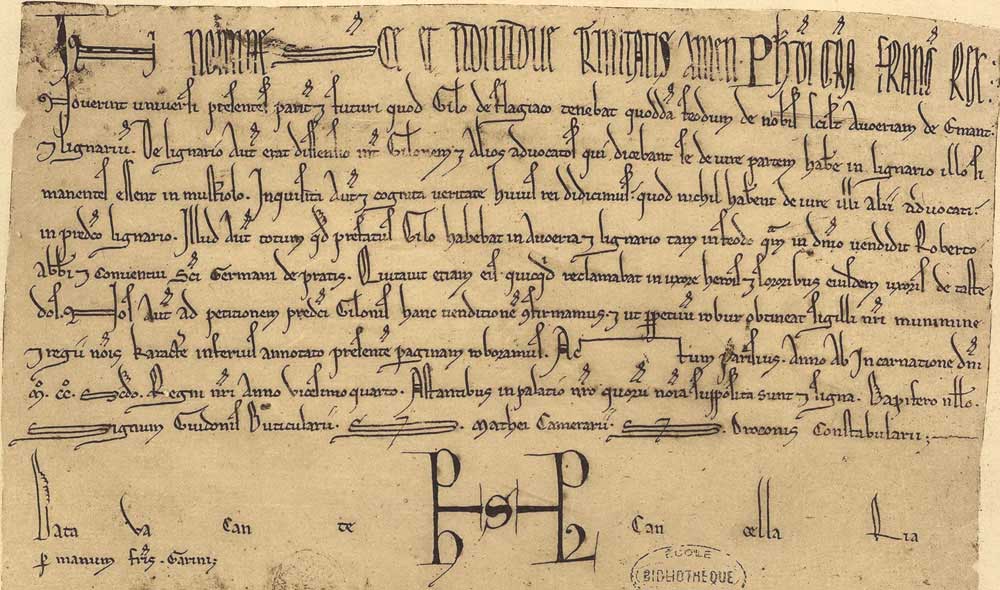 In nomine sancte et individue Trinitatis amen. Ph. Di gra Franc Rex.
Noverint universi presentes parit & futuri quod Gilo de flagiaco tenebat quodda feodum de nobis scilt Avoeriam de Emant
& lignariu. De lignario Aut erat dissensio int Gilonem & Alios advocatos qui dicebant se de iure partem habe in lignario illo si
manentes essent in musterolo. Inquisita Aut & cognita veritate huius rei didicimus quod nichil habent de iure illi Alii advocati
in predco lignario. Illud Aut totum qd prefatus Gilo habebat in Avoeria & lignario tam in feodo qm in dnio vendidit Roberto
Abbi & Conventui Sci Germani de pratis. Quitavit etiam eis quicqd reclamabat in uxore & sororibus eiusdem uxoris de
Nos Aut Ad petitionem predci Gilonis hanc venditione 9firmamus & ut ppetuu robur obtineat sigilli nri munimine
& regii nois karactere inferius annotato presente paginam roboramus. Actum Parisius. Anno Ab Incarnatione dni
mo. cco. Scdo. Regni nri Anno vicesimo quarto. Astantibus in palatio nro quoru noia supposita sunt & signa. Dapifero nllo.
Signum Guidonis Buticularii. S. Mathei Camerarii. S. Droconis Constabularii;
Data va can te Can cella Ria
p manum fris Garini;
ECOLE
BIBLIOTHEQUE